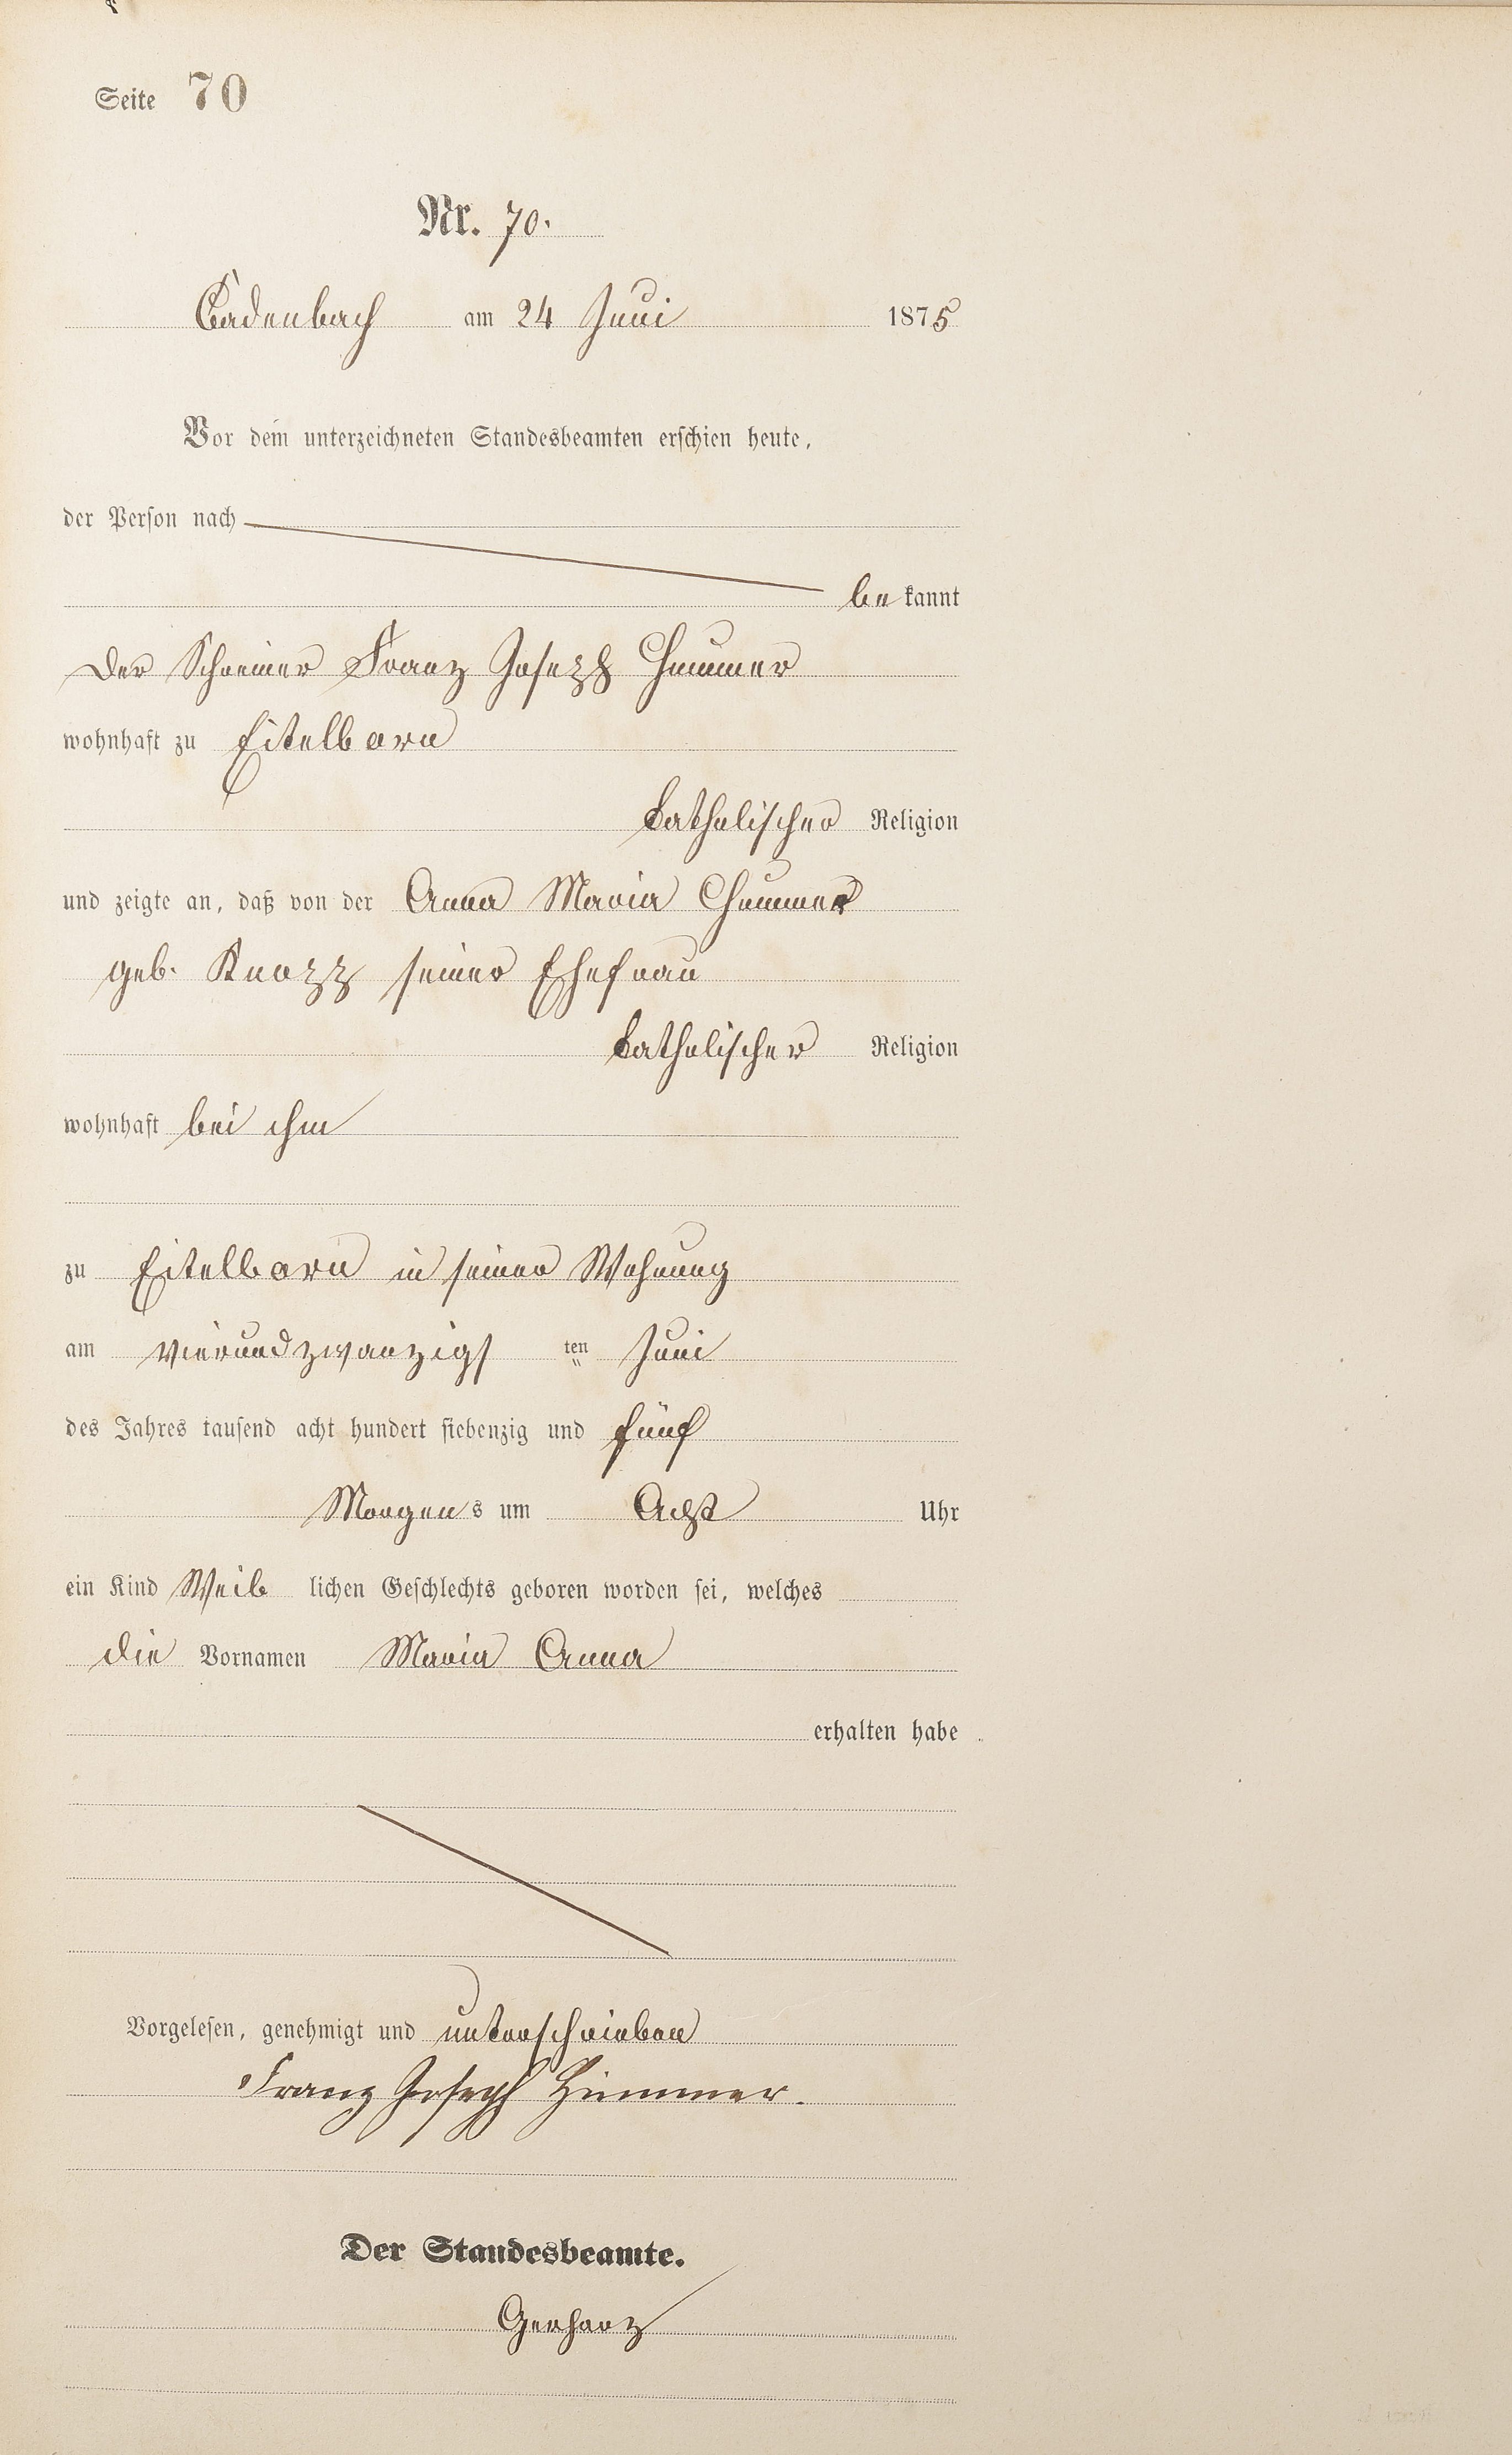 Seite 70
Nr. 70.
Cadenbach am 24 Juni 1875
Vor dem unterzeichneten Standesbeamten erschien heute,
der Person nach
be kannt
der Schreiner Franz Joseph Hümmer
wohnhaft zu Eitelborn
katholischer Religion
und zeigte an, daß von der Anna Maria Hümmer
geb. Knopp seiner Ehefrau
katholischer Religion
wohnhaft bei ihm
zu Eitelborn in seiner Wohnung
am vierundzwanzigs ten Juni
des Jahres tausend acht hundert siebenzig und fünf
Morgens um Acht Uhr
ein Kind Weib lichen Geschlechts geboren worden sei, welches
die Vornamen Maria Anna
erhalten habe
Vorgelesen, genehmigt und unterschrieben
Franz Joseph Hümmer.
Der Standesbeamte.
Gerharz